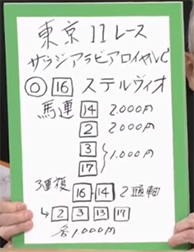 東京11レース
サウジアラビアロイヤルC
◎ 16 ステルヴィオ
馬連 14 2,000円
2 2,000円
3
17 } 1,000円
3連複 16-14 2頭軸
↳ 2 3 13 17
各1,000円